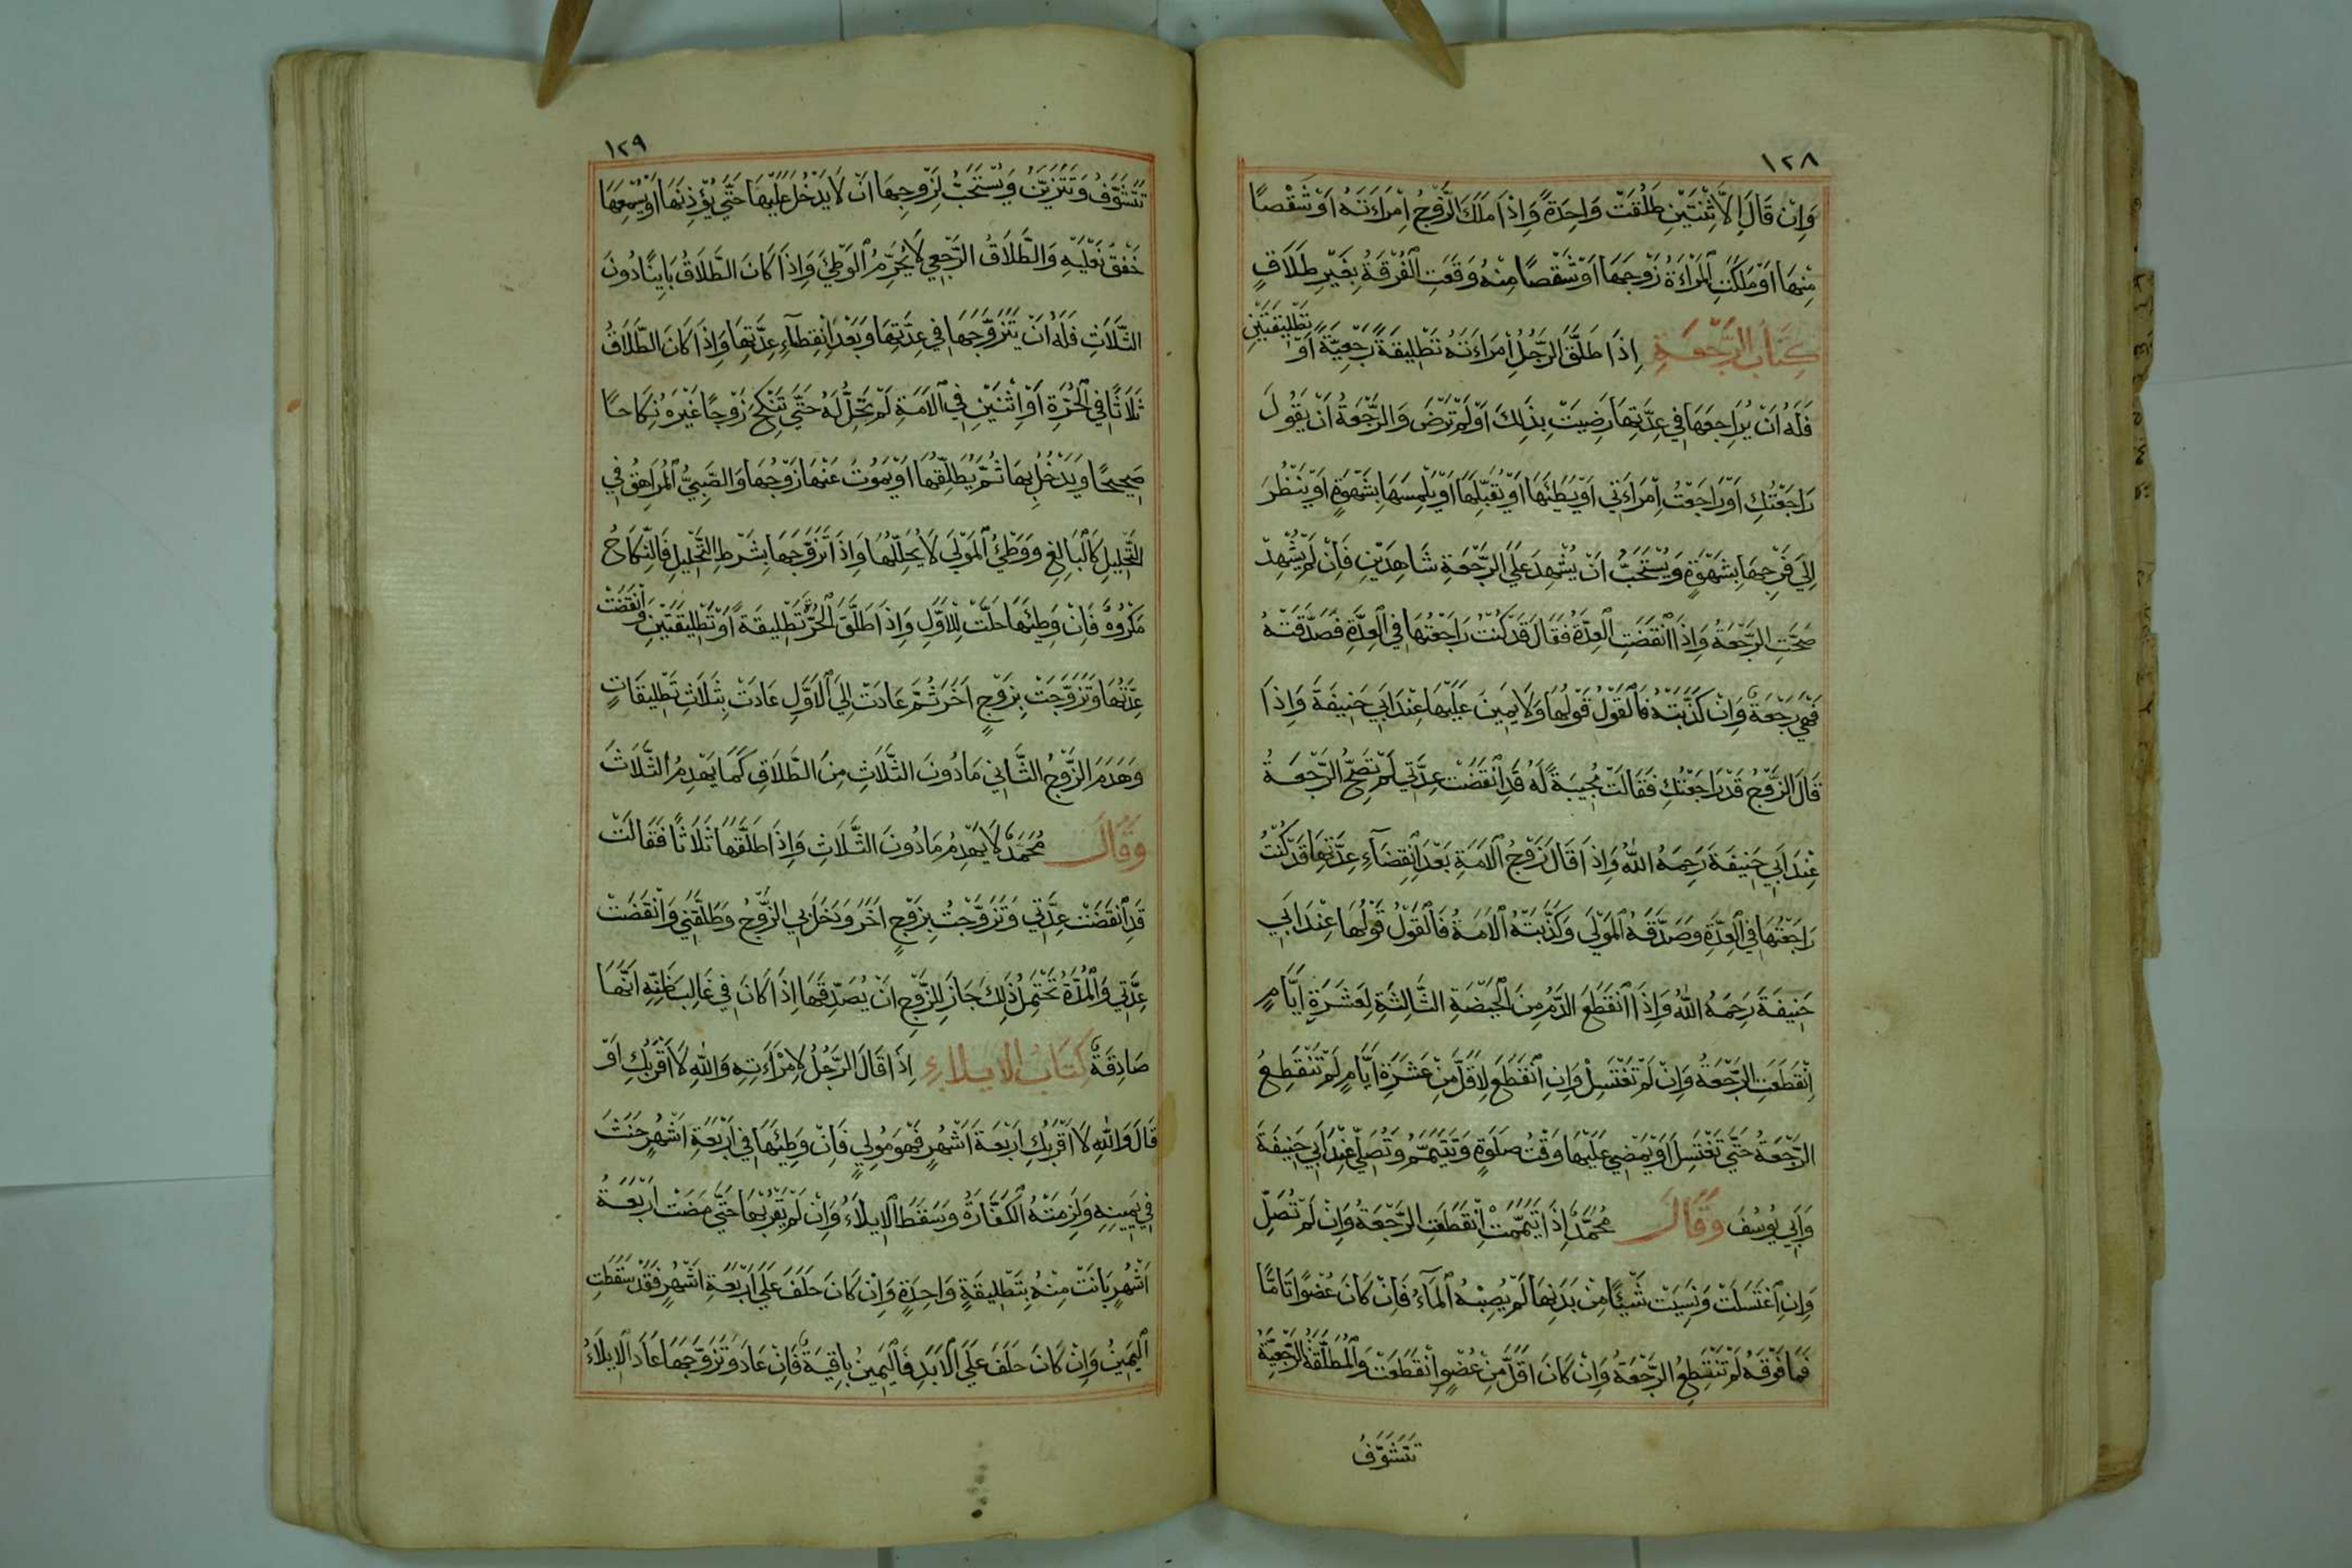 ١٢٨
وَاِنْ قَالَ اِلَّا ثِنْتَيْنِ طَلُقَتْ وَاحِدَةً وَاِذَا مَلَكَ الزَّوْجُ اِمْرَاَتَهُ اَوْ شَقْصًا
مِنْهَا اَوْ مَلَكَتِ الْمَرْاَةُ زَوْجَهَا اَوْ شَقْصًا مِنْهُ وَقَعَتِ الْفُرْقَةُ بِغَيْرِ طَلَاقٍ
كِتَابُ الرَّجْعَةِ اِذَا طَلَّقَ الرَّجُلُ امْرَاَتَهُ تَطْلِيقَةً رَجْعِيَّةً اَوْ تَطْلِيقَتَيْنِ
فَلَهُ اَنْ يُرَاجِعَهَا فِي عِدَّتِهَا رَضِيَتْ بِذٰلِكَ اَوْ لَمْ تَرْضَ وَالرَّجْعَةُ اَنْ يَقُولَ
رَاجَعْتُكِ اَوْ رَاجَعْتُ اِمْرَاَتِي اَوْ يَطَئَهَا اَوْ يُقَبِّلَهَا اَوْ يَلْمِسَهَا بِشَهْوَةٍ اَوْ يَنْظُرَ
اِلَى فَرْجِهَا بِشَهْوَةٍ وَيُسْتَحَبُّ اَنْ يُشْهِدَ عَلَى الرَّجْعَةِ شَاهِدَيْنِ فَاِنْ لَمْ يُشْهِدْ
صَحَّتِ الرَّجْعَةُ وَاِذَا انْقَضَتِ الْعِدَّةُ فَقَالَ قَدْ كُنْتُ رَاجَعْتُهَا فِي الْعِدَّةِ فَصَدَّقَتْهُ
فَهِيَ رَجْعَةٌ وَاِنْ كَذَّبَتْهُ فَالْقَوْلُ قَوْلُهَا وَلَا يَمِينَ عَلَيْهَا عِنْدَ اَبِي حَنِيفَةَ وَاِذَا
قَالَ الزَّوْجُ قَدْ رَاجَعْتُكِ فَقَالَتْ مُجِيبَةً لَهُ قَدِ انْقَضَتْ عِدَّتِي لَمْ تَصِحَّ الرَّجْعَةُ
عِنْدَ اَبِي حَنِيفَةَ رَحِمَهُ اللّٰهُ وَاِذَا قَالَ زَوْجُ الْاَمَةِ بَعْدَ انْقِضَاءِ عِدَّتِهَا قَدْ كُنْتُ
رَاجَعْتُهَا فِي الْعِدَّةِ وَصَدَّقَهُ الْمَوْلَى وَكَذَّبَتْهُ الْاَمَةُ فَالْقَوْلُ قَوْلُهَا عِنْدَ اَبِي
حَنِيفَةَ رَحِمَهُ اللّٰهُ وَاِذَا انْقَطَعَ الدَّمُ مِنَ الْحَيْضَةِ الثَّالِثَةِ لِعَشَرَةِ اَيَّامٍ
اِنْقَطَعَتِ الرَّجْعَةُ وَاِنْ لَمْ تَغْتَسِلْ وَاِنِ انْقَطَعَ لِاَقَلَّ مِنْ عَشَرَةِ اَيَّامٍ لَمْ تَنْقَطِعْ
الرَّجْعَةُ حَتَّى تَغْتَسِلَ اَوْ يَمْضِيَ عَلَيْهَا وَقْتُ صَلَوٰةٍ وَتَتَيَمَّمُ وَتُصَلِّي عِنْدَ اَبِي حَنِيفَةَ
وَاَبِي يُوسُفَ وَقَالَ مُحَمَّدٌ اِذَا تَيَمَّمَتْ اِنْقَطَعَتِ الرَّجْعَةُ وَاِنْ لَمْ تُصَلِّ
وَاِنِ اغْتَسَلَتْ وَنَسِيَتْ شَيْئًا مِنْ بَدَنِهَا لَمْ يُصِبْهُ الْمَاءُ فَاِنْ كَانَ عُضْوًا تَامًّا
فَمَا فَوْقَهُ لَمْ تَنْقَطِعِ الرَّجْعَةُ وَاِنْ كَانَ اَقَلَّ مِنْ عُضْوٍ اِنْقَطَعَتْ وَالْمُطَلَّقَةُ الرَّجْعِيَّةُ
تَتَشَوَّفُ
١٢٩
تَتَشَوَّفُ وَتَتَزَيَّنُ وَيُسْتَحَبُّ لِزَوْجِهَا اَنْ لَا يَدْخُلَ عَلَيْهَا حَتَّى يُؤْذِنَهَا اَوْ يُسْمِعَهَا
خَفْقَ نَعْلَيْهِ وَالطَّلَاقُ الرَّجْعِيُّ لَا يُحَرِّمُ الْوَطْئَ وَاِذَا كَانَ الطَّلَاقُ بَايِنًا دُونَ
الثَّلَاثِ فَلَهُ اَنْ يَتَزَوَّجَهَا فِي عِدَّتِهَا وَبَعْدَ انْقِطَاءِ عِدَّتِهَا وَاِذَا كَانَ الطَّلَاقُ
ثَلَاثًا فِي الْحُرَّةِ اَوْ اِثْنَيْنِ فِي الْاَمَةِ لَمْ تَحِلَّ لَهُ حَتَّى تَنْكِحَ زَوْجًا غَيْرَهُ نِكَاحًا
صَحِيحًا وَيَدْخُلُ بِهَا ثُمَّ يُطَلِّقُهَا اَوْ يَمُوتُ عَنْهَا زَوْجُهَا وَالصَّبِيُّ الْمُرَاهِقُ فِي
التَّحْلِيلِ كَالْبَالِغِ وَوَطْئُ الْمَوْلَى لَا يُحَلِّلُهَا وَاِذَا تَزَوَّجَهَا بِشَرْطِ التَّحْلِيلِ فَالنِّكَاحُ
مَكْرُوهٌ فَاِنْ وَطِئَهَا حَلَّتْ لِلْاَوَّلِ وَاِذَا طَلَّقَ الْحُرَّةَ تَطْلِيقَةً اَوْ تَطْلِيقَتَيْنِ وَانْقَضَتْ
عِدَّتُهَا وَتَزَوَّجَتْ بِزَوْجٍ اٰخَرَ ثُمَّ عَادَتْ اِلَى الْاَوَّلِ عَادَتْ بِثَلَاثِ تَطْلِيقَاتٍ
وَهَدَمَ الزَّوْجُ الثَّانِي مَا دُونَ الثَّلَاثِ مِنَ الطَّلَاقِ كَمَا يَهْدِمُ الثَّلَاثَ
وَقَالَ مُحَمَّدٌ لَا يَهْدِمُ مَا دُونَ الثَّلَاثِ وَاِذَا طَلَّقَهَا ثَلَاثًا فَقَالَتْ
قَدِ انْقَضَتْ عِدَّتِي وَتَزَوَّجْتُ بِزَوْجٍ اٰخَرَ وَدَخَلَ بِي الزَّوْجُ وَطَلَّقَنِي وَانْقَضَتْ
عِدَّتِي وَالْمُدَّةُ تَحْتَمِلُ ذٰلِكَ جَازَ لِلزَّوْجِ اَنْ يُصَدِّقَهَا اِذَا كَانَ فِي غَالِبِ ظَنِّهِ اَنَّهَا
صَادِقَةٌ كِتَابُ الْاِيلَاءِ اِذَا قَالَ الرَّجُلُ لِامْرَاَتِهِ وَاللّٰهِ لَا اَقْرَبُكِ اَوْ
قَالَ وَاللّٰهِ لَا اَقْرَبُكِ اَرْبَعَةَ اَشْهُرٍ فَهُوَ مُولِي فَاِنْ وَطِئَهَا فِي اَرْبَعَةِ اَشْهُرٍ حَنَثَ
فِي يَمِينِهِ وَلَزِمَتْهُ الْكَفَّارَةُ وَسَقَطَ الْاِيلَاءُ وَاِنْ لَمْ يَقْرَبْهَا حَتَّى مَضَتْ اَرْبَعَةُ
اَشْهُرٍ بَانَتْ مِنْهُ بِتَطْلِيقَةٍ وَاحِدَةٍ وَاِنْ كَانَ حَلَفَ عَلَى اَرْبَعَةِ اَشْهُرٍ فَقَدْ سَقَطَتِ
الْيَمِينُ وَاِنْ كَانَ حَلَفَ عَلَى الْاَبَدِ فَالْيَمِينُ بَاقِيَةٌ فَاِنْ عَادَ وَتَزَوَّجَهَا عَادَ الْاِيلَاءُ